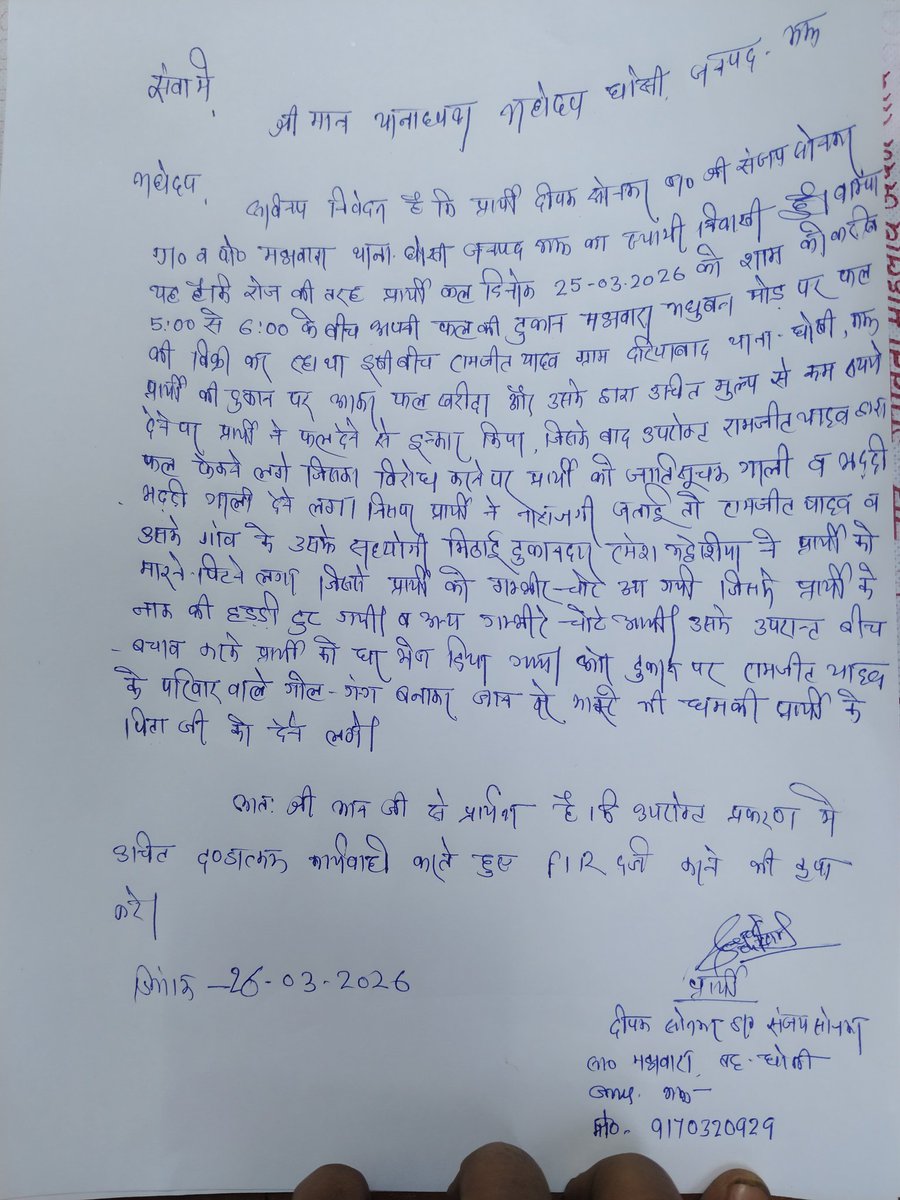 सेवा में,
श्री मान थानाध्यक्ष महोदय घोसी, जनपद - मऊ
महोदय,
सविनय निवेदन है कि प्रार्थी दीपक सोनकर S/o श्री संजय सोनकर
ग्रा० व पो० मझवारा थाना- घोसी जनपद मऊ का स्थायी निवासी है। वाक्या
यह है। कि रोज की तरह प्रार्थी कल दिनांक 25-03-2026 को शाम को करीब
5:00 से 6:00 के बीच अपनी फल की दुकान मझवारा मधुबन मोड़ पर फल
की बिक्री कर रहा था इसी बीच रामजीत यादव ग्राम दरियाबाद थाना- घोसी, मऊ
प्रार्थी की दुकान पर आकर फल खरीदा और उसके द्वारा उचित मुल्य से कम रुपये
देने पर प्रार्थी ने फल देने से इन्कार किया, जिसके बाद उपरोक्त रामजीत यादव द्वारा
फल फेंकने लगे जिसका विरोध करने पर प्रार्थी को जातिसूचक गाली व भद्दी
भद्दी गाली देने लगा। जिसपर प्रार्थी ने नाराजगी जताई तो रामजीत यादव व
उसके गांव के उसके सहयोगी मिठाई दुकानदार रमेश मद्देशिया ने प्रार्थी को
मारने-पिटने लगा जिससे प्रार्थी को गम्भीर चोटे आ गयी जिसके प्रार्थी के
नाक की हड्डी टुट गयी व अन्य गम्भीर चोटे आयी। उसके उपरान्त बीच
- बचाव करके प्रार्थी को घर भेज दिया गया और दुकान पर रामजीत यादव
के परिवार वाले गोल - गंग बनाकर जान से मारने की धमकी प्रार्थी के
पिता जी को देने लगे।
अतः श्री मान जी से प्रार्थना है। कि उपरोक्त प्रकरण मे
उचित दण्डात्मक कार्यवाही करते हुए FIR दर्ज करने की कृपा
करे।
दिनांक - 26-03-2026
प्रार्थी
दीपक सोनकर S/o संजय सोनकर
ग्रा० मझवारा, घोसी
मऊ
मो०- 9170320929